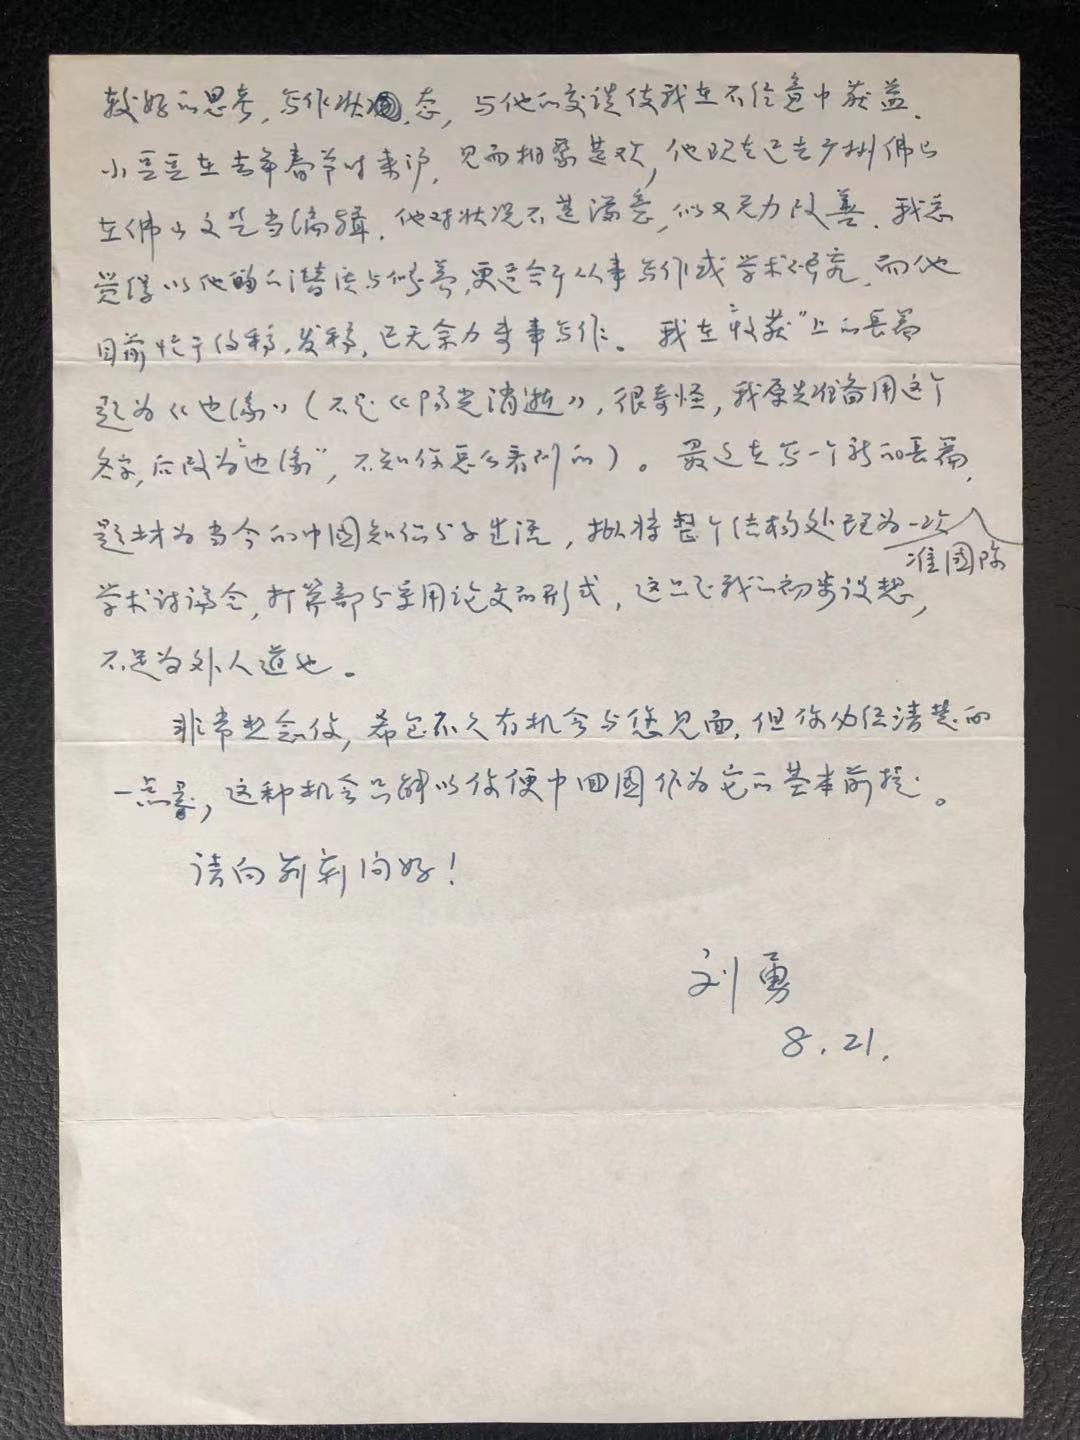 较好的思考，写作状态，与他的交谈使我在不经意中获益．
小豆豆在去年春节时来沪，见面相聚甚欢，他现在已去广州佛山
在佛山文艺当编辑．他对状况不甚满意，似又无力改善．我总
觉得以他的潜质与修养，更适合于从事写作或学术研究．而他
目前忙于约稿、发稿，已无余力来事写作。我在"收获"上的长篇
题为《边缘》（不是《阳光消逝》，很奇怪，我原先准备用这个
名字，后改为"边缘"，不知你怎么看到的）。最近在写一个新的长篇，
题材为当今的中国知识分子生活，拟将整个结构处理为一次准国际
学术讨论会，打算部分采用论文的形式，这只是我的初步设想，
不足为外人道也。
非常想念你，希望不久有机会与您见面，但你我均清楚的
一点是，这种机会只能以你便中回国作为它的基本前提。
请向 问好！
刘勇
8.21.